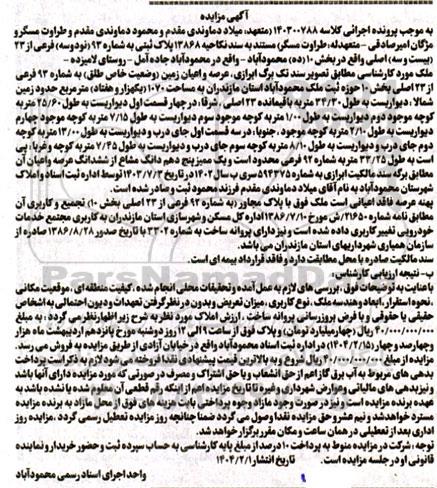 آگهی مزایده
به موجب پرونده اجرائی کلاسه ۱۴۰۳۰۰۷۸۸ (متعهد: میلاد دماوندی مقدم و محمود دماوندی مقدم و طراوت مسگر و
مژگان امیرصادقی - متعهدله: طراوت مسگر) مستند به سند نکاحیه ۱۳۸۶۸ پلاک ثبتی به شماره ۹۳ (نود و سه) فرعی از ۲۳
(بیست و سه) اصلی واقع در بخش ۱۰ (ده) محمودآباد - واقع در محمودآباد جاده آمل - روستای لامیزده -
ملک مورد کارشناسی مطابق تصویر سند تک برگ ابرازی، عرصه و اعیان زمین (وضعیت خاص طلق) به شماره ۹۳ فرعی
از ۲۳ اصلی بخش ۱۰ حوزه ثبت ملک محمودآباد استان مازندران به مساحت ۱۰۷۰ (یکهزار و هفتاد) مترمربع حدود زمین
شمالا: دیواریست به طول ۳۴/۳۰ متر به باقیمانده ۲۳ اصلی شرقا: در چهار قسمت اول دیواریست به طول ۲۵/۶۰ متر به
کوچه موجود دوم دیواریست به طول ۱/۰۰ متر به کوچه موجود سوم دیواریست به طول ۷/۱۵ متر به کوچه موجود چهارم
دیواریست به طول ۲/۱۰ متر به کوچه موجود. جنوبا: در سه قسمت اول جای درب و دیواریست به طول ۱۳/۰۰ متر به کوچه
دوم جای درب و دیواریست به طول ۸/۱۰ متر به کوچه سوم جای درب و دیواریست به طول ۷/۴۵ متر به کوچه و غربا: پی
است به طول ۳۳/۲۵ متر به شماره ۹۲ فرعی محدود است و یک ممیز پنج دهم دانگ مشاع از ششدانگ عرصه و اعیان آن
مطابق برگه سند مالکیت ابرازی به شماره ۵۹۴۳۷۵ سری ب سال ۱۴۰۲ در تاریخ ۱۴۰۳/۷/۳ توسط اداره ثبت اسناد و املاک
شهرستان محمودآباد به نام آقای میلاد دماوندی مقدم فرزند محمود ثبت و صادر شده است.
پهنه عرصه فاقد اعیانی است ملک فوق با پلاک مجاور (به شماره ۹۲ فرعی از ۲۳ اصلی بخش ۱۰) تجمیع و کاربری آن
مطابق نامه شماره ۲۱۶۵۰/ش مورخ ۱۳۸۶/۷/۱۰ اداره کل مسکن و شهرسازی استان مازندران به کاربری مجتمع خدمات
خودرویی تغییر کاربری داده شده است و نیز دارای پروانه ساخت به شماره ۳۳۰۲ با تاریخ صدور ۱۳۸۶/۸/۲۸ صادره از
سازمان همیاری شهرداریهای استان مازندران می باشد.
سند مالکیت صادره با محل مطابقت دارد و فاقد قرارداد بیمه ای است.
ب- نتیجه ارزیابی کارشناس:
با عنایت به توضیحات فوق، بررسی های لازم به عمل آمده و تحقیقات محلی انجام شده، کیفیت منطقه ای، موقعیت مکانی
، نحوه استقرار، ابعاد و هندسه ملک، نوع کاربری، میزان تعریض و بدون در نظر گرفتن تعهدات و دیون احتمالی به اشخاص
حقیقی یا حقوقی و با فرض بروزرسانی پروانه ساخت، ارزش املاک مورد نظر به شرح زیر اظهار نظر می گردد: به مبلغ
۴۰/۰۰۰/۰۰۰/۰۰۰ ریال (چهارمیلیارد تومان) و پلاک فوق از ساعت ۹ الی ۱۲ روز دوشنبه مورخ پانزدهم اردیبهشت ماه هزار
وچهارصد و چهار (۱۴۰۴/۲/۱۵) در اداره ثبت اسناد محمودآباد واقع در خیابان آزادی از طریق مزایده به فروش می رسد.
مزایده از مبلغ ۴۰/۰۰۰/۰۰۰/۰۰۰ ریال شروع و به بالاترین قیمت پیشنهادی نقدا فروخته می شود لازم به ذکر است پرداخت
بدهی های مربوط به آب برق گاز اعم از حق انشعاب و یا حق اشتراک و مصرف در صورتی که مورد مزایده دارای آنها باشد
و نیز بدهی های مالیاتی و عوارض شهرداری و غیره تا تاریخ مزایده اعم از اینکه رقم قطعی آن معلوم شده یا نشده باشد به
عهده برنده مزایده است و نیز در صورت وجود مازاد وجوه پرداختی بابت هزینه های فوق از محل مازاد به برنده مزایده
مسترد خواهد شد و نیم عشر و حق مزایده نقدا وصول می گردد ضمنا چنانچه روز مزایده تعطیل رسمی گردد، مزایده روز
اداری بعد از تعطیلی در همان ساعت و مکان مقرر برگزار خواهد شد.
توجه: شرکت در مزایده منوط به پرداخت ۱۰ درصد از مبلغ پایه کارشناسی به حساب سپرده ثبت و حضور خریدار و نماینده
قانونی او در جلسه مزایده است. تاریخ انتشار: ۱۴۰۴/۲/۱
واحد اجرای اسناد رسمی محمودآباد